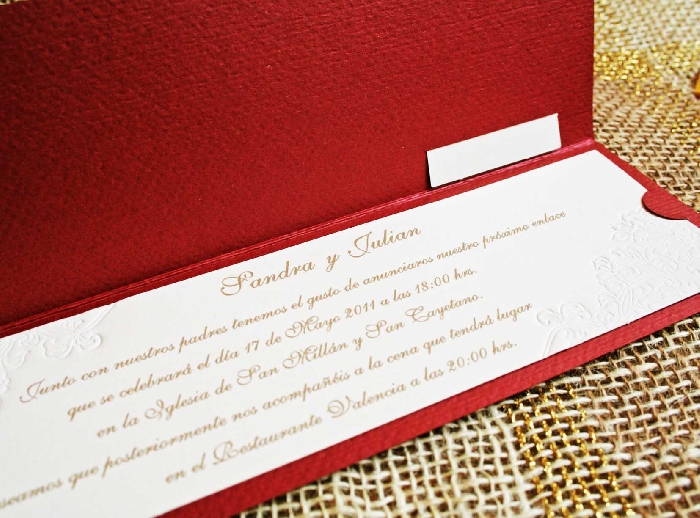 Sandra y Julian
Junto con nuestros padres tenemos el gusto de anunciaros nuestro próximo enlace
que se celebrará el día 17 de Mayo 2011 a las 18:00 hrs.
en la Iglesia de San Millán y San Cayetano.
seamos que posteriormente nos acompañéis a la cena que tendrá lugar
en el Restaurante Valencia a las 20:00 hrs.